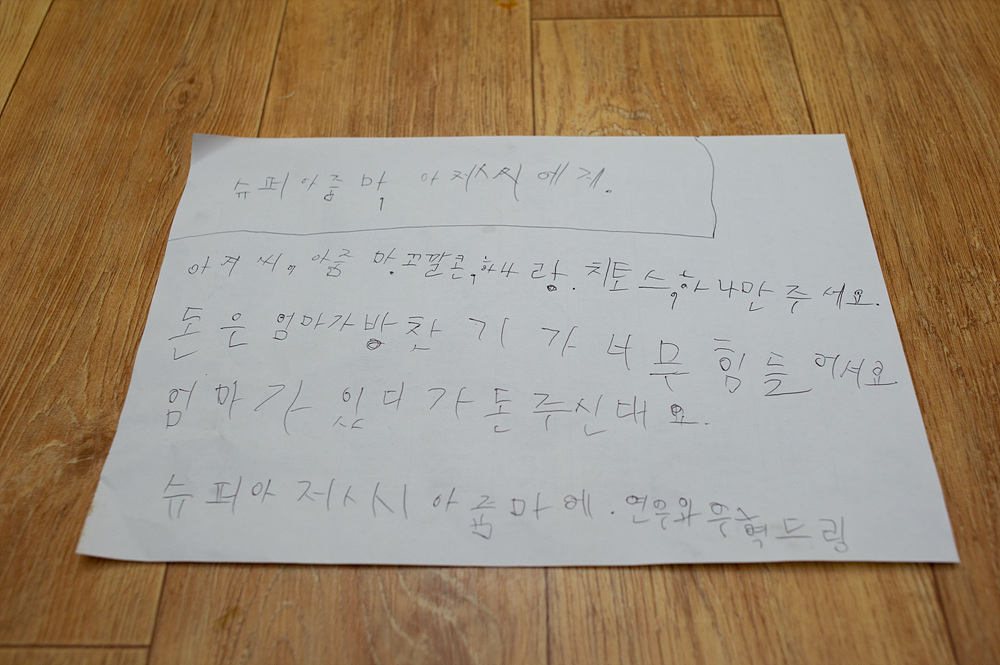 슈퍼아줌마, 아저씨에게.
아저씨, 아줌마. 꼬깔콘, 하나랑. 치토스, 하나만주세요.
돈은 엄마가방찬기가너무힘들어서요
엄마가 있다가돈주신대요.
슈피아저시시아줌마에. 연우와우혁드림